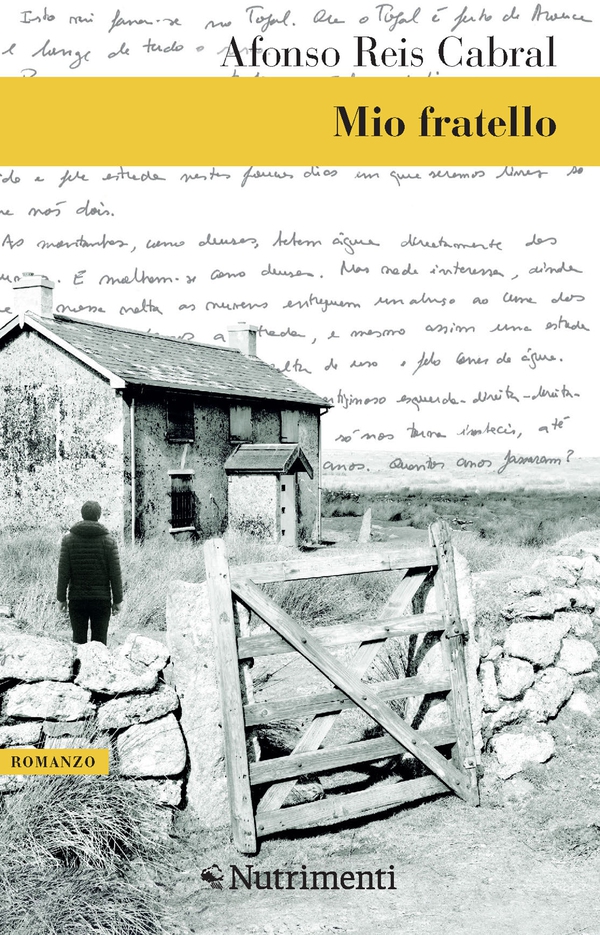 Isto no Tojal. Ora o Tojal é perto de Arouca
e longe de tudo o
Afonso Reis Cabral
Mio fratello
e pela estrada nestes poucos dias em que seremos livres só
nós dois.
As montanhas, como deuses, bebem água directamente das
E molham-se como deuses. Mas nada interessa, ainda
nessa malta as nuvens entreguem um abraço ao cume dos
a estrada, e mesmo assim uma estrada
de uso e pelo correr de água.
esquerda-direita-direita-
só nos torna, até
anos. Quantos anos passaram?
ROMANZO
Nutrimenti